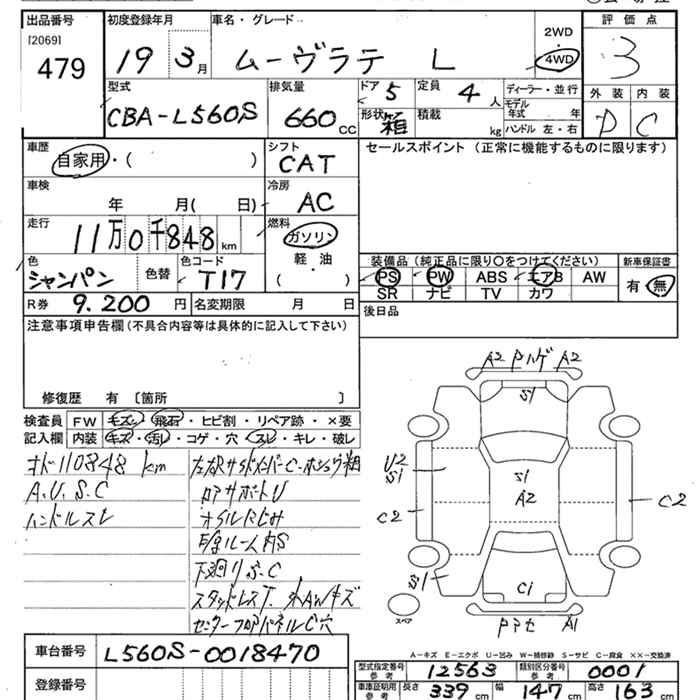 出品番号 初度登録年月 車名・グレード 評価点
[2069] 479
19 3月 ムーヴラテ L 2WD 4WD 3
型式 排気量 ドア 5 定員 4人 ディーラー・並行 外装 内装
CBA-L560S 660cc 形状 箱 積載 kg モデル年式 年 D C
ハンドル 左・右
車歴 シフト セールスポイント (正常に機能するものに限ります)
自家用・( ) CAT
車検 冷房
年 月( 日) AC
走行 燃料
11万0千848km ガソリン
軽・油
色 色替 色コード ( ) 装備品 (純正品に限り○をつけてください) 新車保証書
シャンパン T17 PS PW ABS エアB AW 有 無
SR ナビ TV カワ
R券 9.200円 名変期限 月 日 後日品
注意事項申告欄 (不具合内容等は具体的に記入して下さい)
修復歴 有 [箇所 ]
検査員 FW キズ・飛石・ヒビ割・リペア跡・×要
記入欄 内装 キズ・汚レ・コゲ・穴・スレ・キレ・破レ
オド110848km
A.U.S.C
ハンドルスレ
コアサポートU
オイルにじみ
下廻りS.C
スタッドレスT. 外AWキズ
センターフロアパネルC穴
A2 Pハゲ A2
S1
U2 S1
S1
A2
C2 C2
S1
C1
A1
スペア
A-キズ E-エクボ U-凹み W-補修跡 S-サビ C-腐食 XX-交換済
車台番号 L560S-0018470
登録番号
型式指定番号 参考 12563 類別区分番号 参考 0001
車庫証明用 参考 長さ 339cm 幅 147cm 高さ 163cm